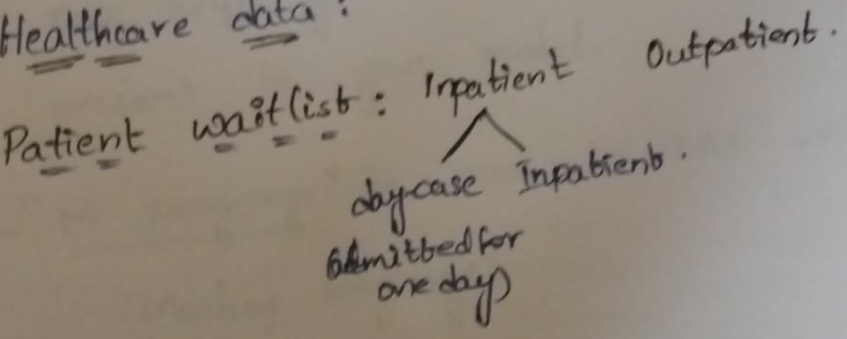 Healthcare data :
Patient waitlist : Inpatient Outpatient.
daycase Inpatient.
admitted for
one day)